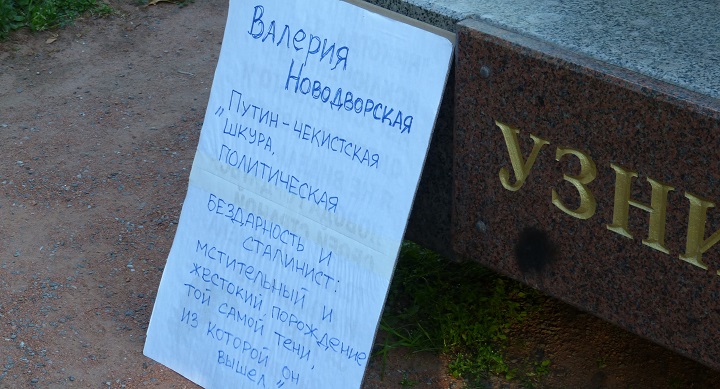 ВАЛЕРИЯ
НОВОДВОРСКАЯ
„ПУТИН – ЧЕКИСТСКАЯ
ШКУРА,
ПОЛИТИЧЕСКАЯ
БЕЗДАРНОСТЬ И
СТАЛИНИСТ:
МСТИТЕЛЬНЫЙ И
ЖЕСТОКИЙ ПОРОЖДЕНИЕ
ТОЙ САМОЙ ТЕНИ,
ИЗ КОТОРОЙ ОН
ВЫШЕЛ"
УЗНИ